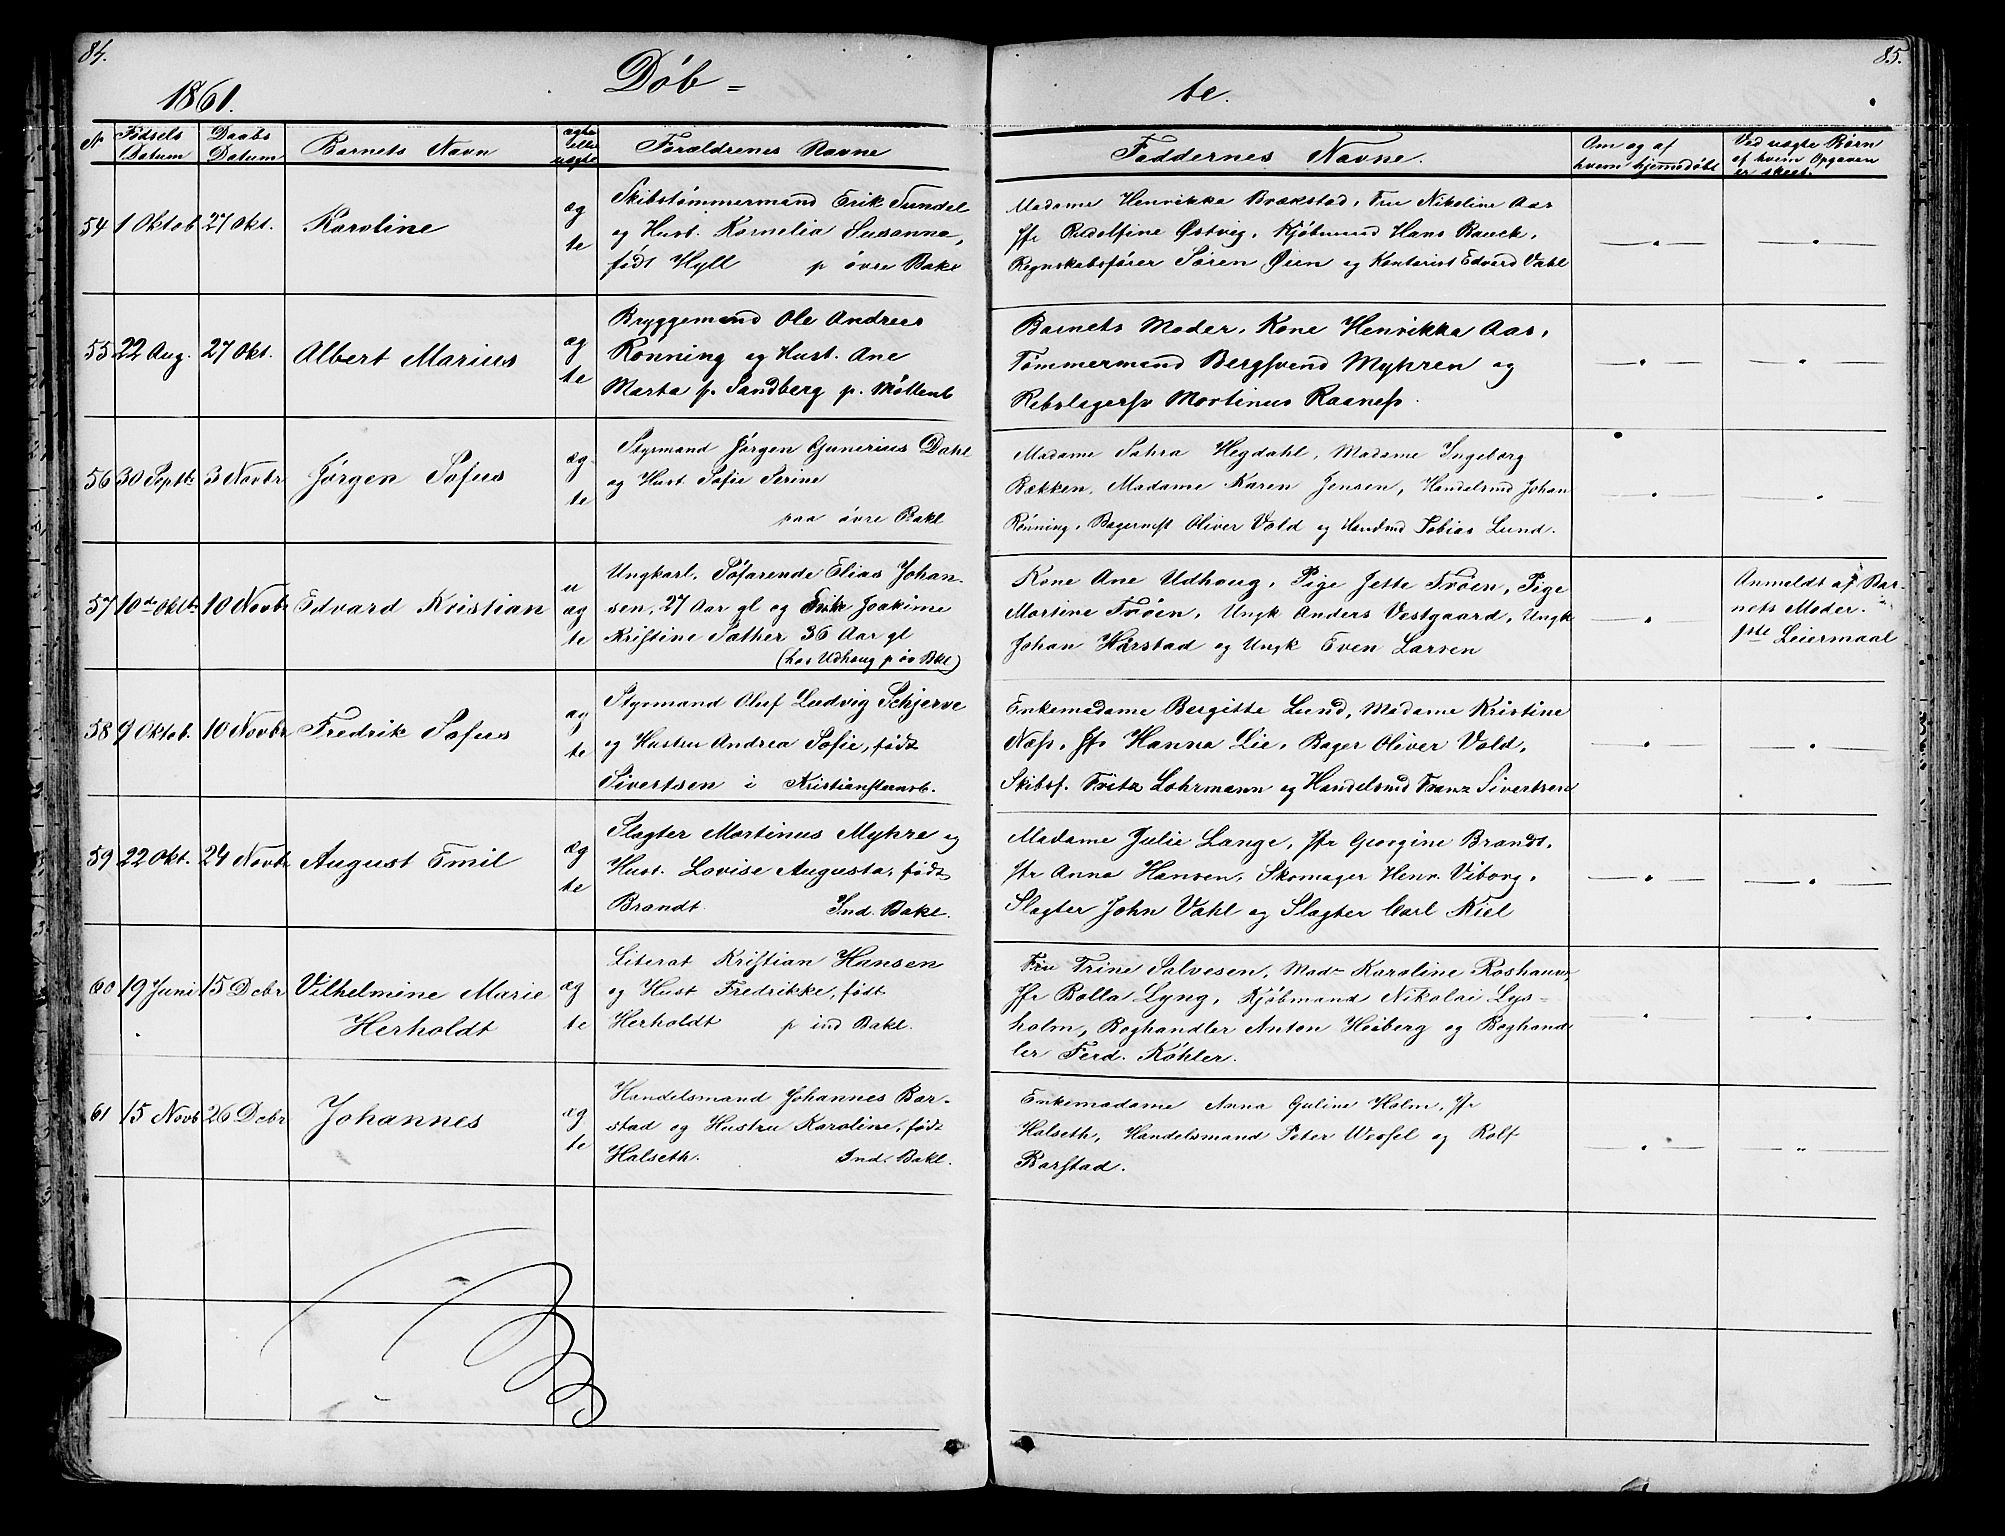 84.
1861.
Döb =
N
Födsels Datum
Daabs Datum
Barnets Navn
ægte eller uægte
Forældrenes Navne
54 1 Oktob 27 Okt. Karoline
æg te
Skibstømmermand Erik Tundel
og Hust. Kornelia Susanna,
født Hyll p øvre Bakl
55 22 Aug. 27 Okt. Albert Marius
æg te
Bryggemand Ole Andreas
Rønning og Hust. Ane
Marta f. Sandberg p. Möllenb
56 30 Septbr 3 Novbr Jørgen Sofus
æg te
Styrmand Jørgen Gunerius Dahl
og Hust Sofie Serine
paa øvre Bakl
57 10de Oktb. 10 Novbr Edvard Kristian
u æg te
Ungkarl. Söfarende Elias Johan-
sen, 27 Aar gl og Joakime
Kristine Sather 36 Aar gl
(hos Udhoug p øv Bkl)
58 9 Oktob. 10 Novbr Fredrik Sofus
æg te
Styrmand Oluf Ludvig Schjerve
og Hustru Andrea Sofie, født
Sivertsen i Kristianstensb.
59 22 Okt. 24 Novbr August Emil
æg te
Slagter Martinus Myhre og
Hust. Lovise Augusta, født
Brandt. Ind. Bakl.
60 19 Juni 15 Decbr Vilhelmine Marie
Herholdt
æg te
Literat Kristian Hansen
og Hust Fredrikke, født
Herholdt p ind Bakl.
61 15 Novb 26 Dcbr Johannes
æg te
Handelsmand Johannes Bar-
stad og Hustru Karoline, født
Halseth. Ind. Bakl.
85.
te.
Faddernes Navne.
Om og af
hvem hjemmedøbt
Ved uægte Børn
af hvem Opgaven
er skeet.
Madame Henrikka Brækstad, Fru Nikoline Aas
Jfr Rudolfine Østvig, Kjøbmand Hans Bauck,
Regnskabsfører Søren Øien og Kontorist Edvard Vahl
Barnets Moder, Kone Henrikka Aas,
Tømmermand Bergsvend Myhren og
Rebslagersv Martinus Raaness.
Madame Sahra Hegdahl, Madame Ingeborg
Bækken, Madame Karen Jensen, Handelsmd Johan
Rønning, Bagermst Oliver Vold og Handsmd Tobias Lund.
Kone Ane Udhoug, Pige Jette Frøen, Pige
Martine Frøen, Ungk Anders Vestgaard, Ungk
Johan Harstad og Ungk Even Larsen
Anmeldt af Bar-
nets Moder.
1ste Leiermaal
Enkemadame Bergitte Lund, Madame Kristine
Næss, Jfr Hanna Lie, Bager Oliver Vold,
Skibsf. Fritz Lohrmann og Handelsmd Franz Sivertsen
Madame Julie Lange, Jfr Georgine Brandt,
Jfr Anna Hansen, Skomager Henr. Viborg,
Slagter John Vahl og Slagter Carl Kiel
Fru Trine Salvesen, Madm Karoline Roshauw,
Jfr Bolla Lyng, Kjøbmand Nikolai Lys-
holm, Boghandler Anton Høiberg og Boghand
ler Ferd. Köhler.
Enkemadame Anna Guline Holm, Jfr
Halseth, Handelsmand Peter Wrofel og Rolf
Barstad.